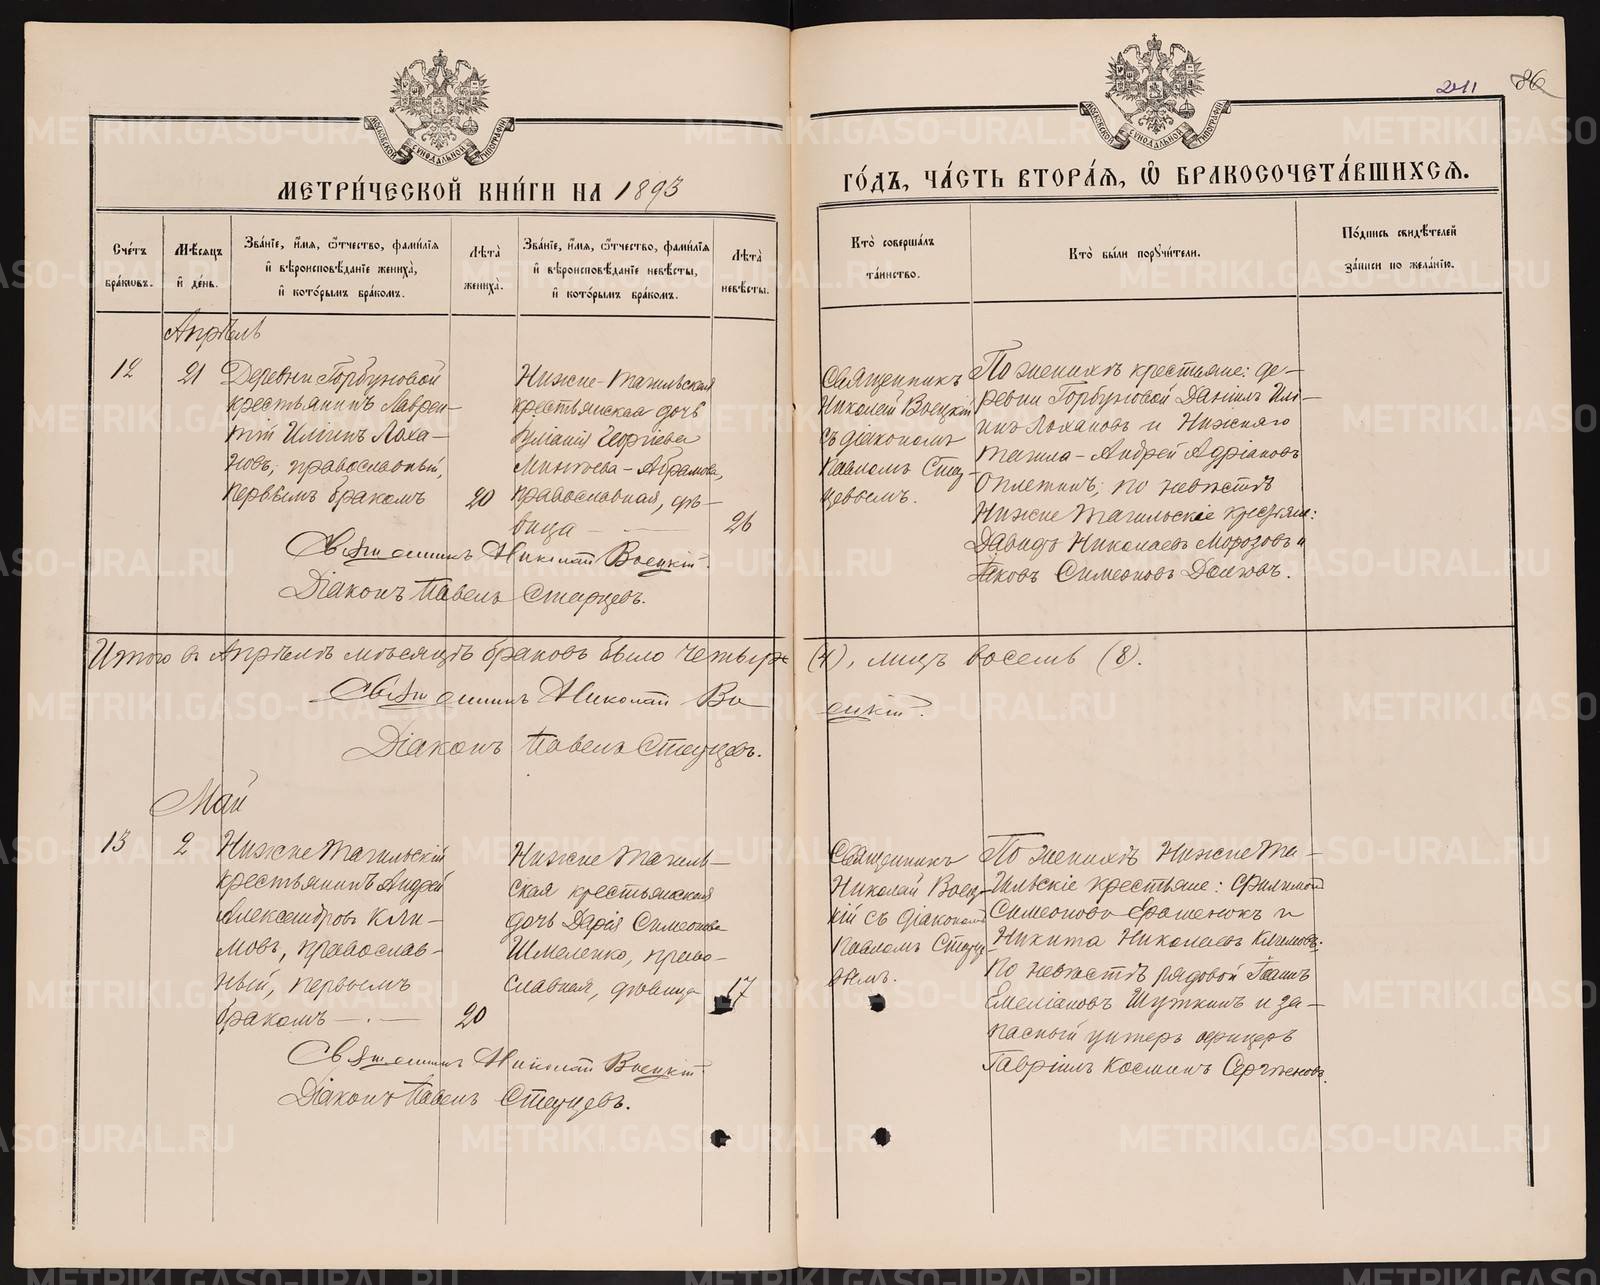 241 86
МЕТРИ́ЧЕСКОЙ КНИ́ГИ НА 1893
ГО́ДЪ, ЧА́СТЬ ВТОРА́Я, Ѽ БРАКОСОЧЕТА́ВШИХСЯ.
Сче́тъ бра́ковъ.
Мѣ́сяцъ и҆ де́нь.
Зва́нїе, и҆́мя, ѻ҆́тчество, фами́лїя
и҆ вѣроисповѣ́данїе жениха̀,
и҆ кото́рымъ бра́комъ.
Лѣ́та жениха̀.
Зва́нїе, и҆́мя, ѻ҆́тчество, фами́лїя
и҆ вѣроисповѣ́данїе невѣ́сты,
и҆ кото́рымъ бра́комъ.
Лѣ́та невѣ́сты.
Кто̀ соверша́лъ
та́инство.
Кто̀ бы́ли порꙋчи́тели.
По́дпись свидѣ́телей
за́писи по жела́нїю.
Апрѣль
12
21
Деревни Горбуновой
крестьянинъ Лаврен-
тій Иліинъ Лоха-
новъ, православный,
первымъ бракомъ
20
Нижне-Тагильская
крестьянская дочь
Іуліанія Георгіева
Абрамова,
православная, дѣ-
вица
26
Священникъ
Николай Воецкій
съ діакономъ
Павломъ Стар-
цевымъ.
По женихѣ крестьяне: де-
ревни Горбуновой Даніилъ Илі-
инъ Лохановъ и Нижняго
Тагила - Андрей Адріановъ
Оплетинъ; по невѣстѣ
Нижне Тагильскіе крестьяне:
Давидъ Николаевъ Морозовъ и
Іаковъ Симеоновъ Долговъ.
Священникъ Николай Воецкій.
Діаконъ Павелъ Старцевъ.
Итого въ Апрѣлѣ мѣсяцѣ браковъ было четыре (4), лицъ восемь (8).
Священникъ Николай Воецкій.
Діаконъ Павелъ Старцевъ.
Май
13
2
Нижне Тагильскій
крестьянинъ Андрей
Александровъ Кли-
мовъ, православ-
ный, первымъ
бракомъ
20
Нижне Тагиль-
ская крестьянская
дочь Дарія Симеонова
Шмеленко, право-
славная, дѣвица
17
Священникъ
Николай Воец-
кій съ діакономъ
Павломъ Старце-
вымъ.
По женихѣ Нижне Та-
гильскіе крестьяне: Филимонъ
Симеоновъ и
Никита Николаевъ Климовъ;
по невѣстѣ рядовой Іоаннъ
Емеліановъ Шуткинъ и за-
пасный унтеръ офицеръ
Гавріилъ Косминъ
Священникъ Николай Воецкій.
Діаконъ Павелъ Старцевъ.